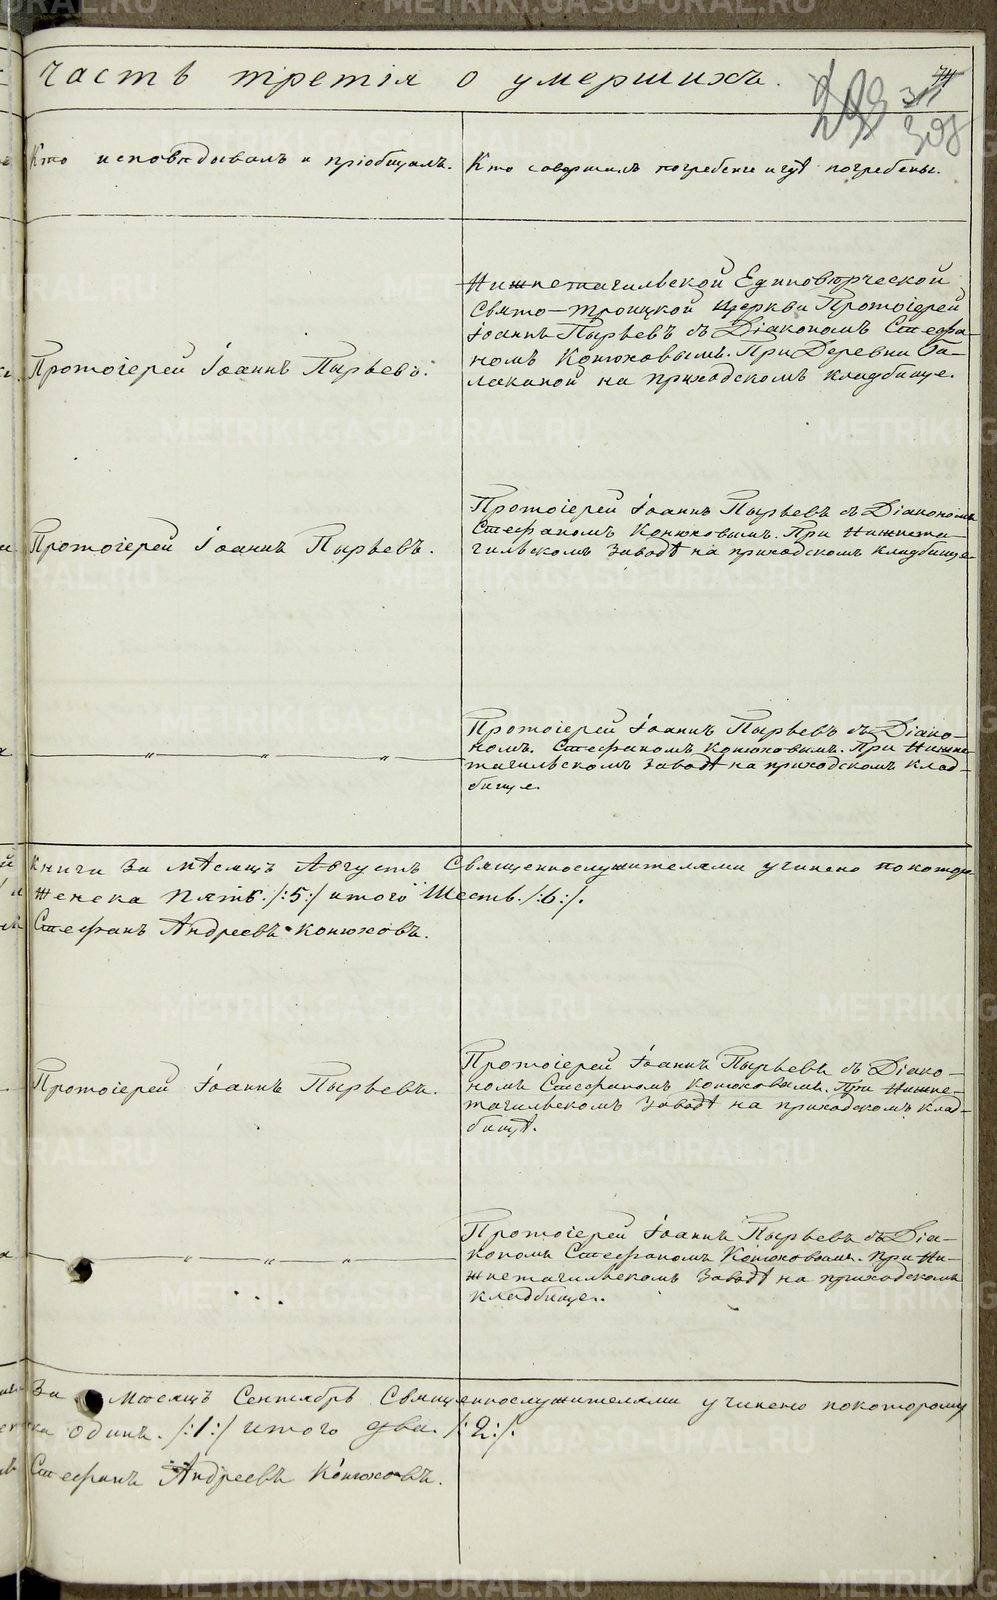 Часть третія о умершихъ.
311
Кто исповѣдывалъ и пріобщалъ.
Кто совершалъ погребеніе и гдѣ погребены.
Нижнетагильской Единовѣрческой
Свято-Троицкой Церкви Протоіерей
Іоаннъ Пырьевъ съ Діакономъ Стефа-
номъ Конюховымъ. При Деревни Ба-
лакиной на приходскомъ кладбище.
Протоіерей Іоаннъ Пырьевъ.
Протоіерей Іоаннъ Пырьевъ съ Діакономъ
Стефаномъ Конюховымъ. При Нижнета-
гильскомъ Заводѣ на приходскомъ кладбище.
Протоіерей Іоаннъ Пырьевъ.
Протоіерей Іоаннъ Пырьевъ съ Діако-
номъ Стефаномъ Конюховымъ. При Нижне-
тагильскомъ Заводѣ на приходскомъ клад-
бище.
— „ — „ — „ —
Книги За Мѣсяцъ Августъ Священнослужителями учинено по котор
женска Пять. /:5:/ итого Шесть. /:6:/.
Стефанъ Андреевъ Конюховъ.
Протоіерей Іоаннъ Пырьевъ съ Діако-
номъ Стефаномъ Конюховымъ. При Нижне-
тагильскомъ Заводѣ на приходскомъ клад-
бищѣ.
Протоіерей Іоаннъ Пырьевъ.
Протоіерей Іоаннъ Пырьевъ съ Діа-
кономъ Стефаномъ Конюховымъ. При Ни-
жнетагильскомъ Заводѣ на приходскомъ
кладбище.
— „ — „ — „ —
За Мѣсяцъ Сентябрь Священнослужителями учинено по которому
ка одинъ. /:1:/ итого два. /:2:/.
Стефанъ Андреевъ Конюховъ.
METRIKI.GASO-URAL.RU